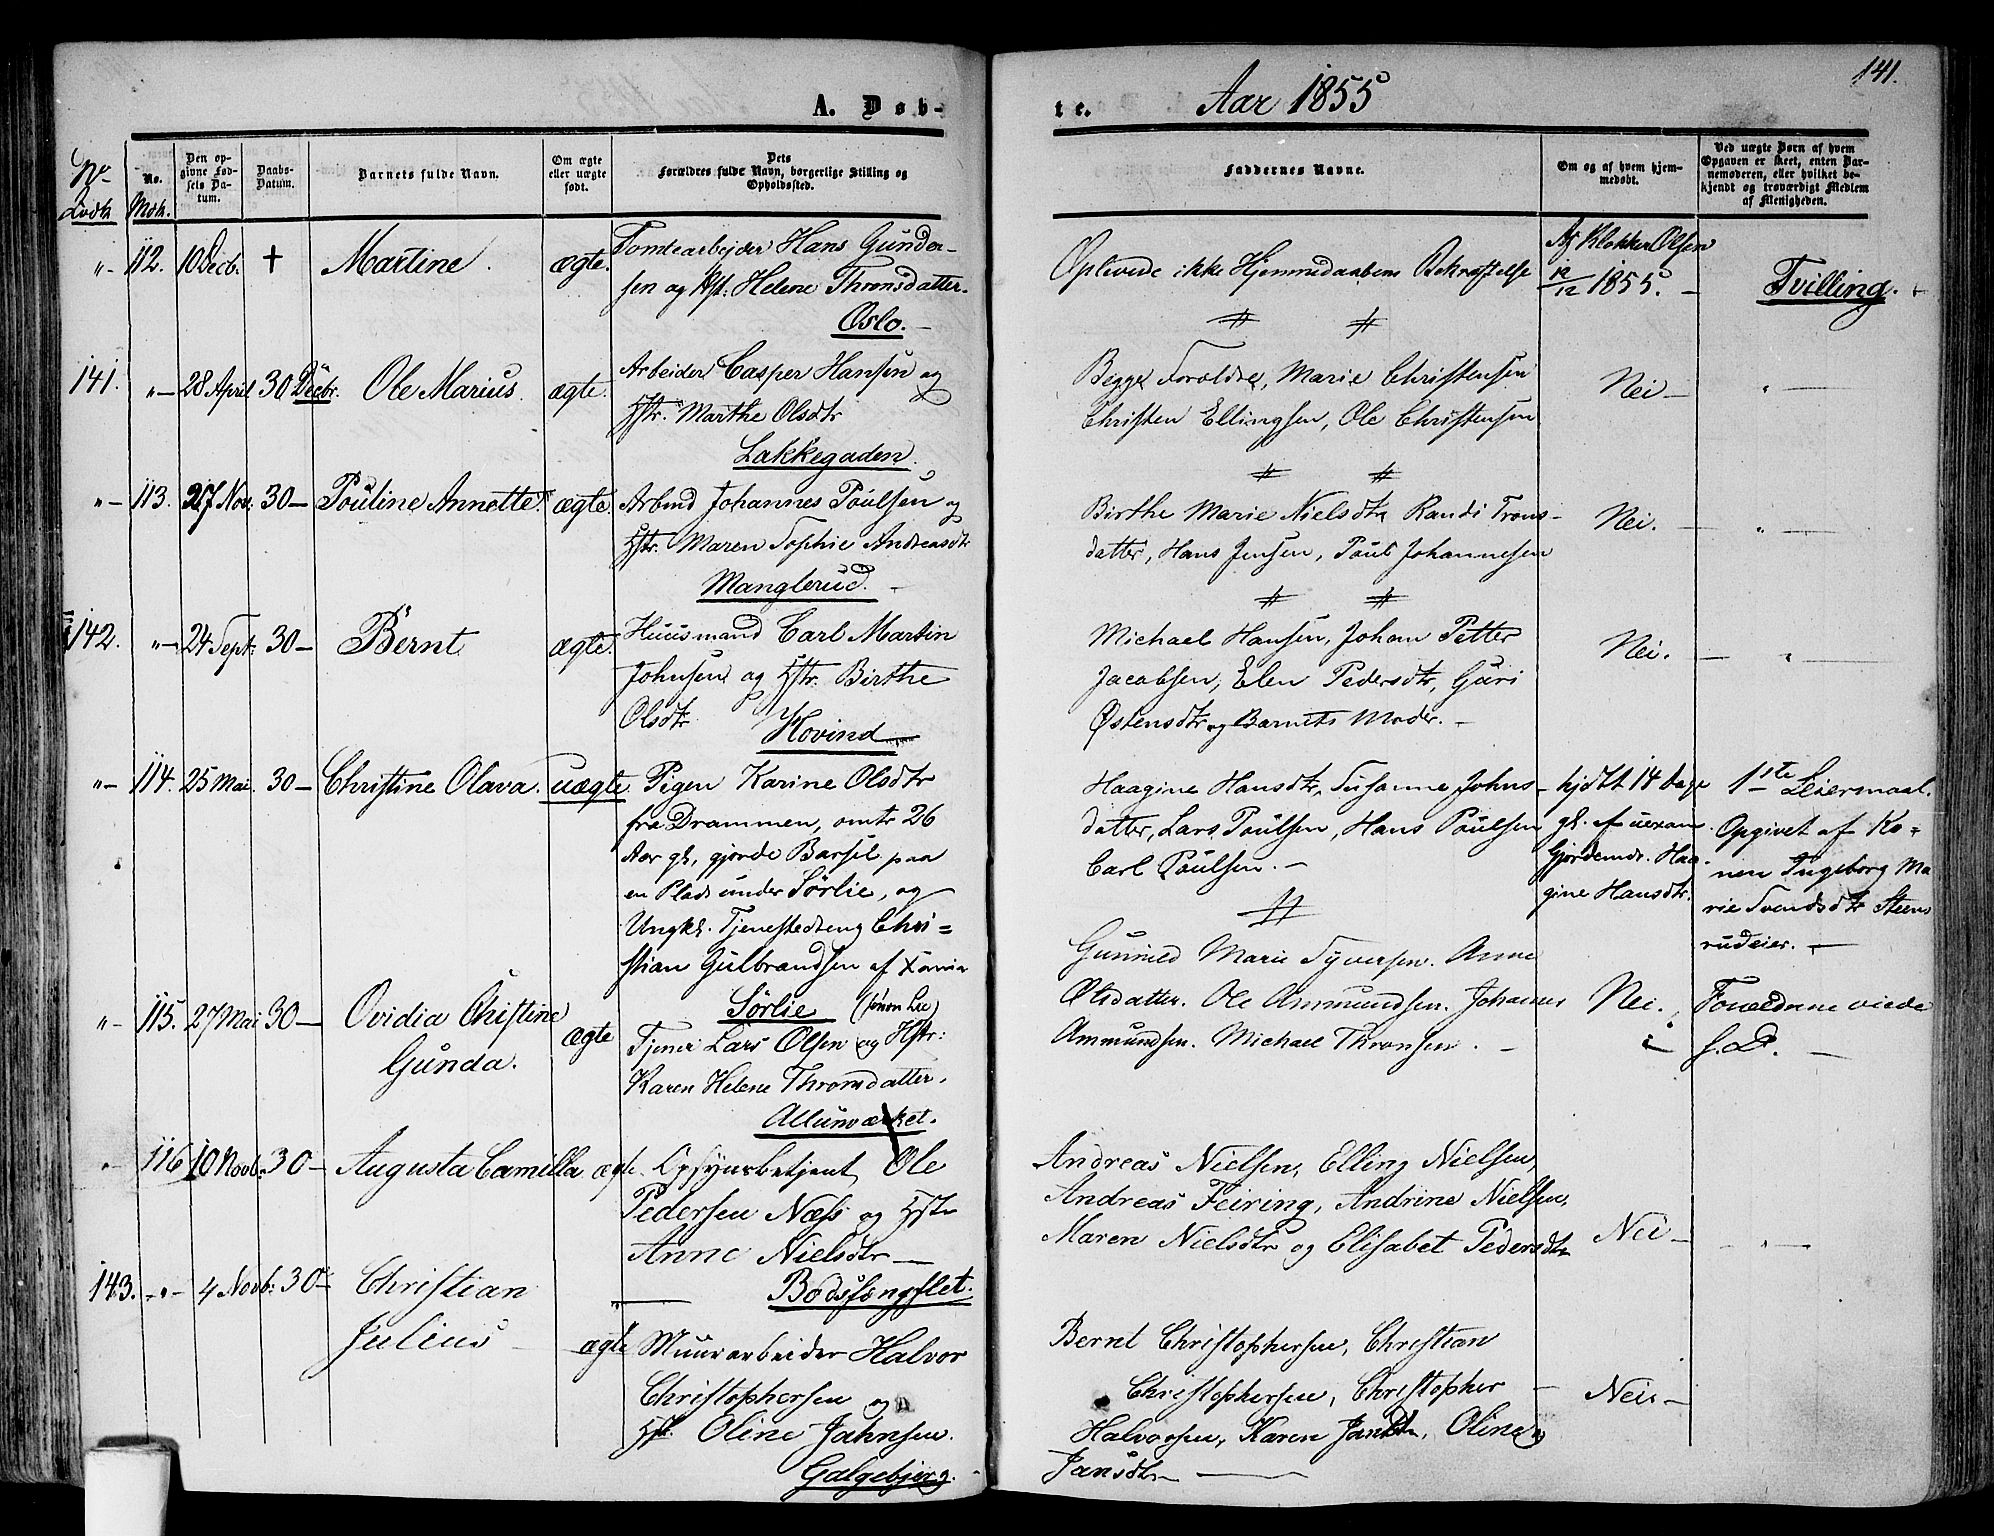 A. Døb-
te.
Aar 1855
141.
No
Lvdk
No.
Mdk.
Den op-
givne Fød-
sels Da-
tum.
Daabs-
Datum.
Barnets fulde Navn.
Om ægte
eller uægte
født.
Dets
Forældres fulde Navn, borgerlige Stilling og
Opholdssted.
Faddernes Navne.
Om og af hvem hjem-
medøbt.
Ved uægte Børn af hvem
Opgaven er skeet, enten Bar-
nemoderen, eller hvilket be-
kjendt og troværdigt Medlem
af Menigheden.
"- 112. 10 Decb. + Martine. ægte.
Tomtearbejder Hans Gunder-
sen og Hst: Helene Thronsdatter.
Oslo.-
Oplevede ikke Hjemmedaabens Bekræftelse
Af Klokker Olsen
12/12 1855. -
Tvilling.
141. "- 28 April 30 Decbr. Ole Marius. ægte.
Arbeider Casper Hansen og
Hstr. Marthe Olsdtr
Lakkegaden.
Begge Forældre, Marie Christensen
Christen Ellingsen, Ole Christensen
Nei - "-
"- 113. 27 Nov: 30- Pouline Annette. ægte.
Arbmd Johannes Poulsen og
Hstr. Maren Sophie Andreasdtr
Manglerud.-
Birthe Marie Nielsdtr Randi Trons-
datter, Hans Jensen, Poul Johannesen
Nei. - "-
142. "- 24 Sept: 30- Bernt ægte.
Huusmand Carl Martin
Johnsen og Hstr. Birthe
Olsdtr Hovind
Michael Hansen, Johan Petter
Jacobsen, Elen Pedersdtr, Guri
Østensdtr og Barnets Moder.-
Nei. - "-
"- 114. 25 Mai. 30- Christine Olava. uægte.
Pigen Karine Olsdtr
fra Drammen, omtr 26
Aar gl, gjorde Barsel paa
en Plads under Sørlie, og
Ungkl. Tjenestedreng Chri=
stian Gulbrandsen af Xania
Sørlie
Haagine Hansdtr, Susanne Johns-
datter, Lars Poulsen, Hans Poulsen
Carl Poulsen.-
hjdbt 14 dage
gl. af uexam
Gjordemdr. Haa-
gine Hansdtr.
1ste Leiermaal.
Opgivet af Ko-
nen Ingeborg Ma
rie Svendsdtr Steens
rudeier.-
"- 115. 27 Mai 30- Ovidia Christine
Gunda. ægte
Tjener Lars Olsen og Hstr:
Karen Helene Thronsdatter.
Allunværket.
Gunnild Marie Syversen. Anne
Olsdatter. Ole Ammundsen. Johannes
Ammundsen. Michael Thronsen. -
Nei.
Forældrene viede
s. D. -
"- 116 10 Novb: 30- Augusta Camilla ægte.
Opsynsbetjent Ole
Pedersen Næss og Hstr
Anne Nielsdtr-
Bodsfængslet.
Andreas Nielsen, Elling Nielsen,
Andreas Feiring, Andrine Nielsen,
Maren Nielsdtr og Elisabet Pedersdtr
Nei - "-
143. "- 4 Novb: 30- Christian
Julius - ægte
Muurarbeider Halvor
Christophersen og
Hst. Oline Jahnsen.
Galgebjerg.-
Bernt Christophersen, Christian
Christophersen, Christopher
Halvorsen, Karen Jansdtr, Oline
Jansdtr
Nei-